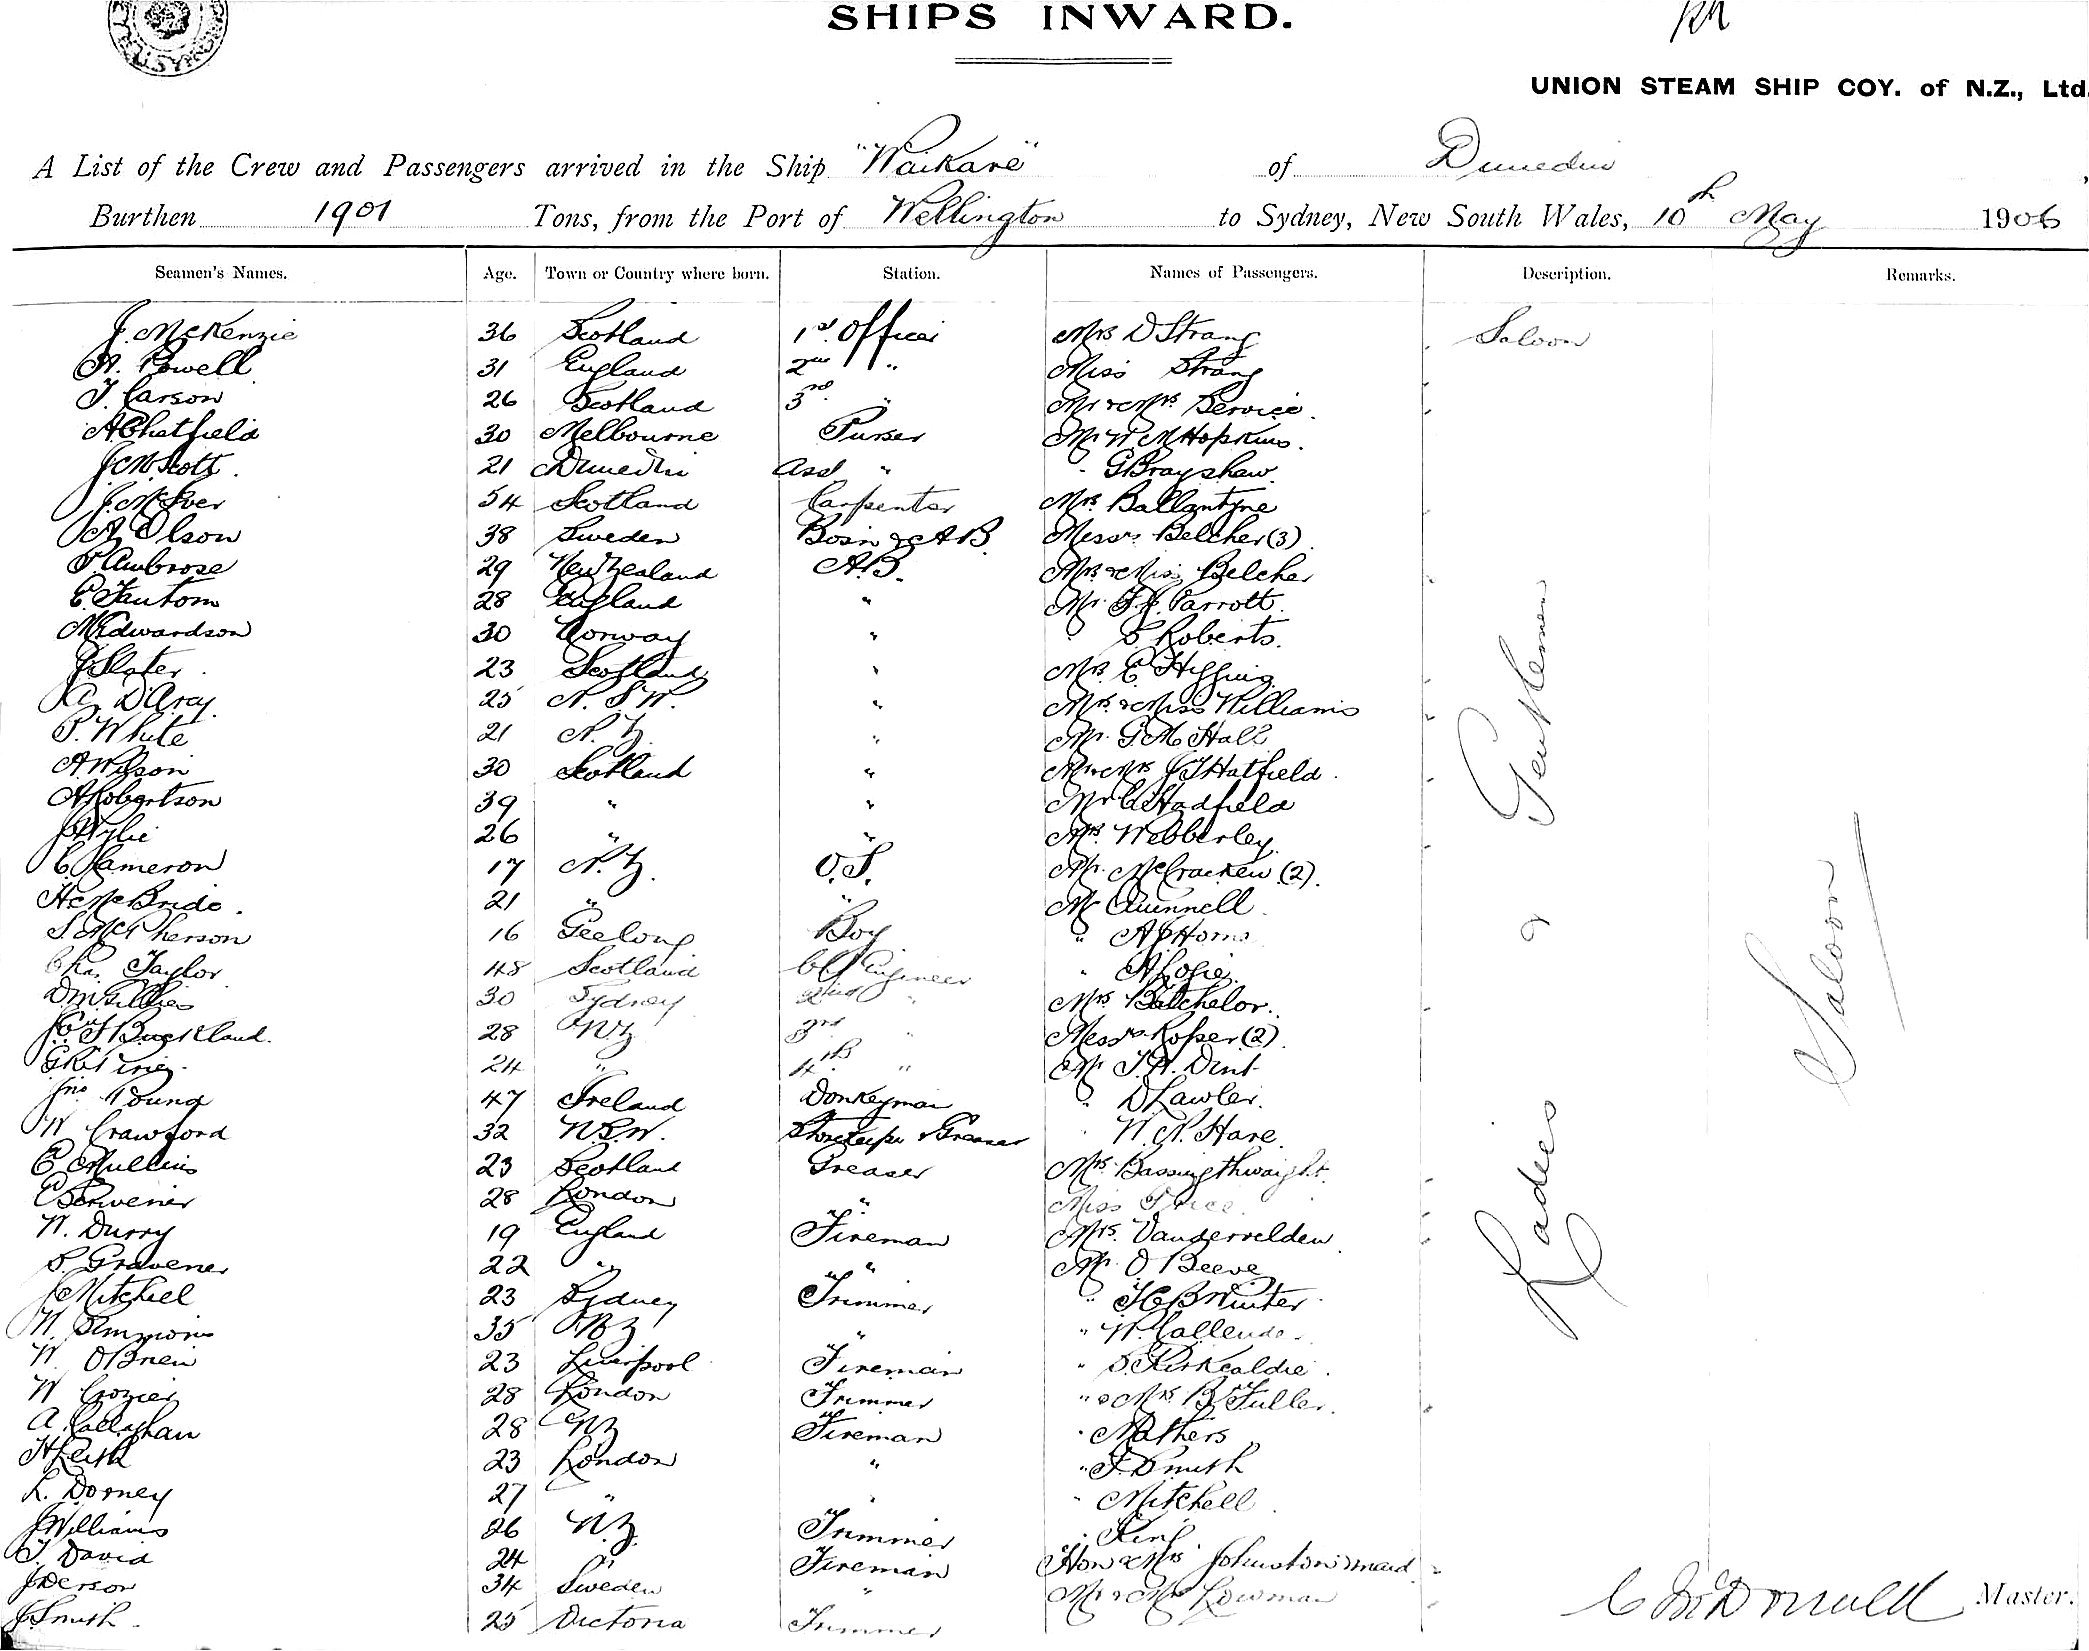 SHIPS INWARD.
UNION STEAM SHIP COY. of N.Z., Ltd.
A List of the Crew and Passengers arrived in the Ship "Waikare" of Dunedin,
Burthen 1901 Tons, from the Port of Wellington to Sydney, New South Wales, 10th May 1906
Seamen's Names. Age. Town or Country where born. Station. Names of Passengers. Description. Remarks.
J. McKenzie 36 Scotland 1st Officer Mrs D Strang Saloon
A. Powell 31 England 2nd " Miss Strang
T. Carson 26 Scotland 3rd " Mr & Mrs Service.
A Chatfield 30 Melbourne Purser Mr W M Hopkins.
J. M Scott. 21 Dunedin Asst " " G Brayshaw.
J. McIver 54 Scotland Carpenter Mrs Ballantyne
A Olson 38 Sweden Bosn & AB. Messrs Belcher (3)
Ambrose 29 New Zealand A.B. Mrs & Miss Belcher
E. Fantom 28 England " Mr Parrott.
N Edwardson 30 Norway " " S. Roberts.
J Slater. 23 Scotland " Mrs E
D'Arcy. 25 N. S. W. " Mrs & Miss Williams
P. White 21 N. Z. " Mr. G M Hall
A Wilson 30 Scotland " Mr & Mrs J T Hatfield.
A Robertson 39 " " Mr C Hadfield
J Wylie 26 " " Mrs. Webberley.
C Cameron 17 N. Z. O. S. Mr. McCracken (2).
H McBride. 21 " " Mr Quinnell.
S McPherson 16 Geelong Boy "
Chas. Taylor 48 Scotland Cf Engineer " A Logie.
D McGillies 30 Sydney 2nd " Mrs Batchelor.
Buckland. 28 NZ 3rd " Messrs Roper (2)
24 " 4th " Mr Dint
Jno Young 47 Ireland Donkeyman " D Lawler.
W Crawford 32 N.S.W. Storekeeper & Greaser " W. N. Hare.
C Mullins 23 Scotland Greaser Mrs Bassingthwaight.
C Scrivener 28 London " Miss Price.
W. Durry 19 England Fireman Mrs. Vandervelden
S. Gravener 22 " " Mr. O Reeve
J Mitchell 23 Sydney Trimmer " H B Winter.
W. Simmons 35 NZ " " W. Callender.
W O'Brien 23 Liverpool Fireman " S. Kirkcaldie.
W Crozier 28 London Trimmer " & Mrs B Fuller.
A Callaghan 28 NZ Fireman " Mathers
H Keith 23 London " " F. Smith
L. Dorney 27 " " " Mitchell.
J Williams 26 N.Z. Trimmer " King
T. David 24 " Fireman Hon & Mrs Johnston & maid
34 Sweden " Mr & Mrs Lowman
J Smith. 25 Victoria Trimmer
Ladies & Gentlemen
Saloon
C McDonald Master.